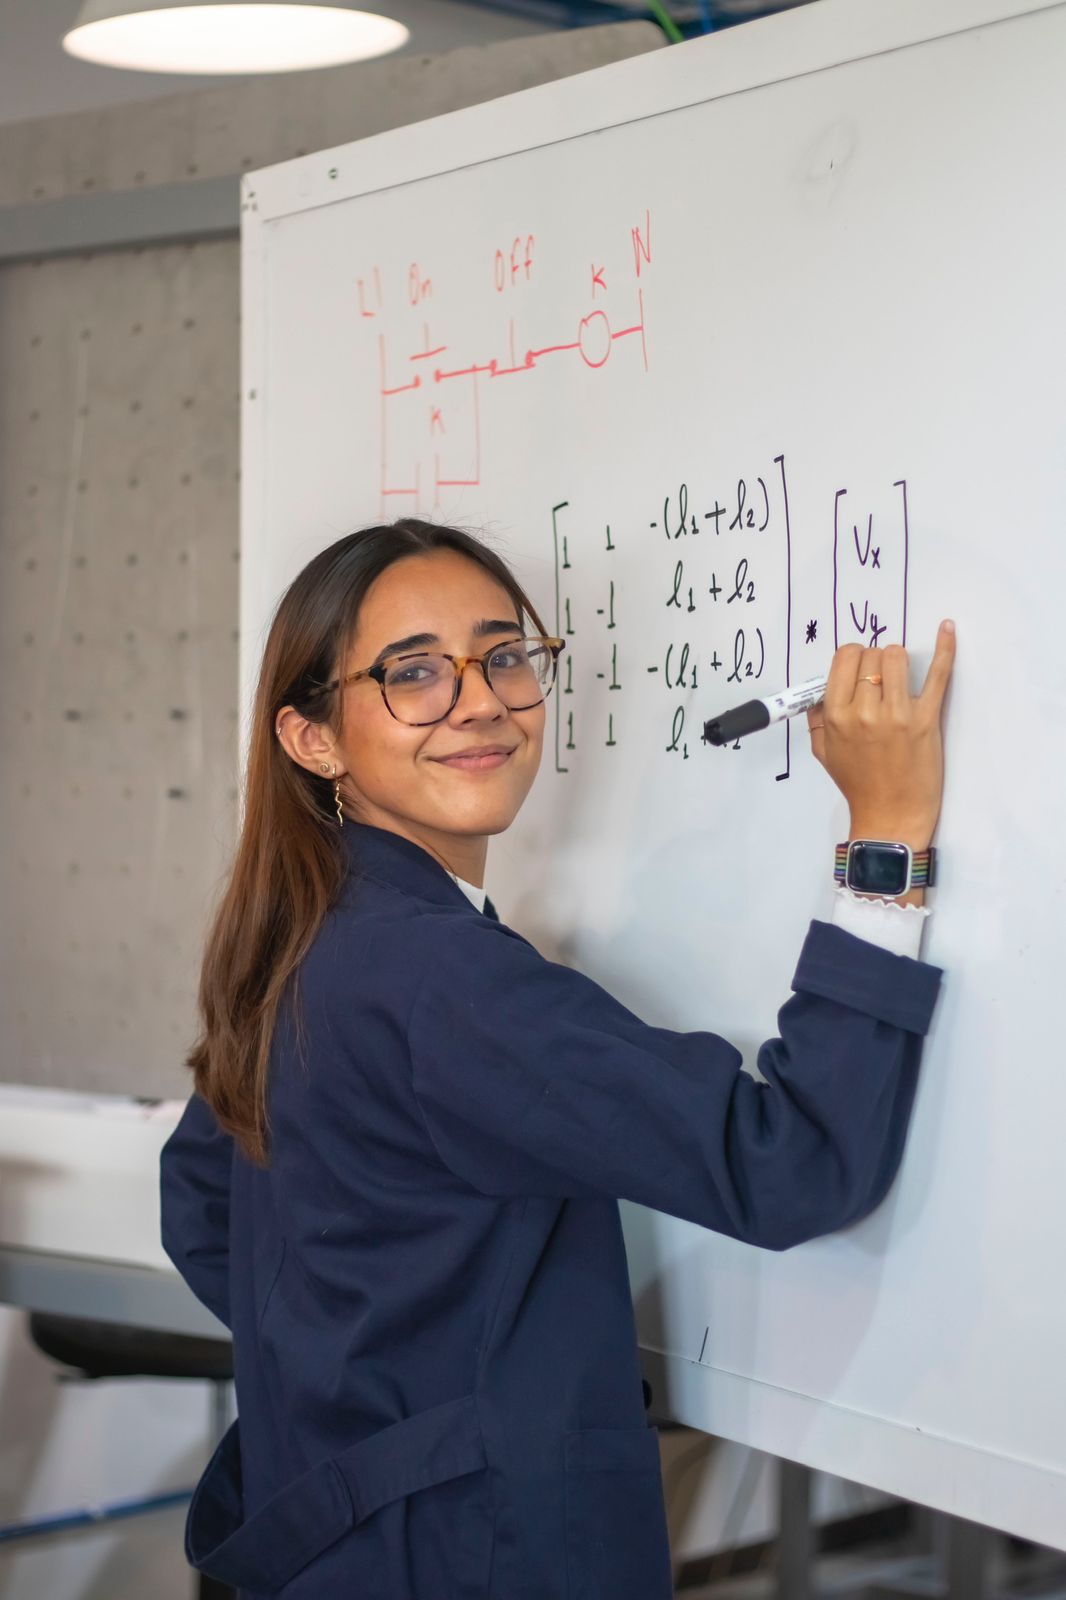 L1 On Off K N
K
1 1 -(l₁+l₂)
1 -1 l₁+l₂
1 -1 -(l₁+l₂)
1 1 l₁
*
Vx
Vy